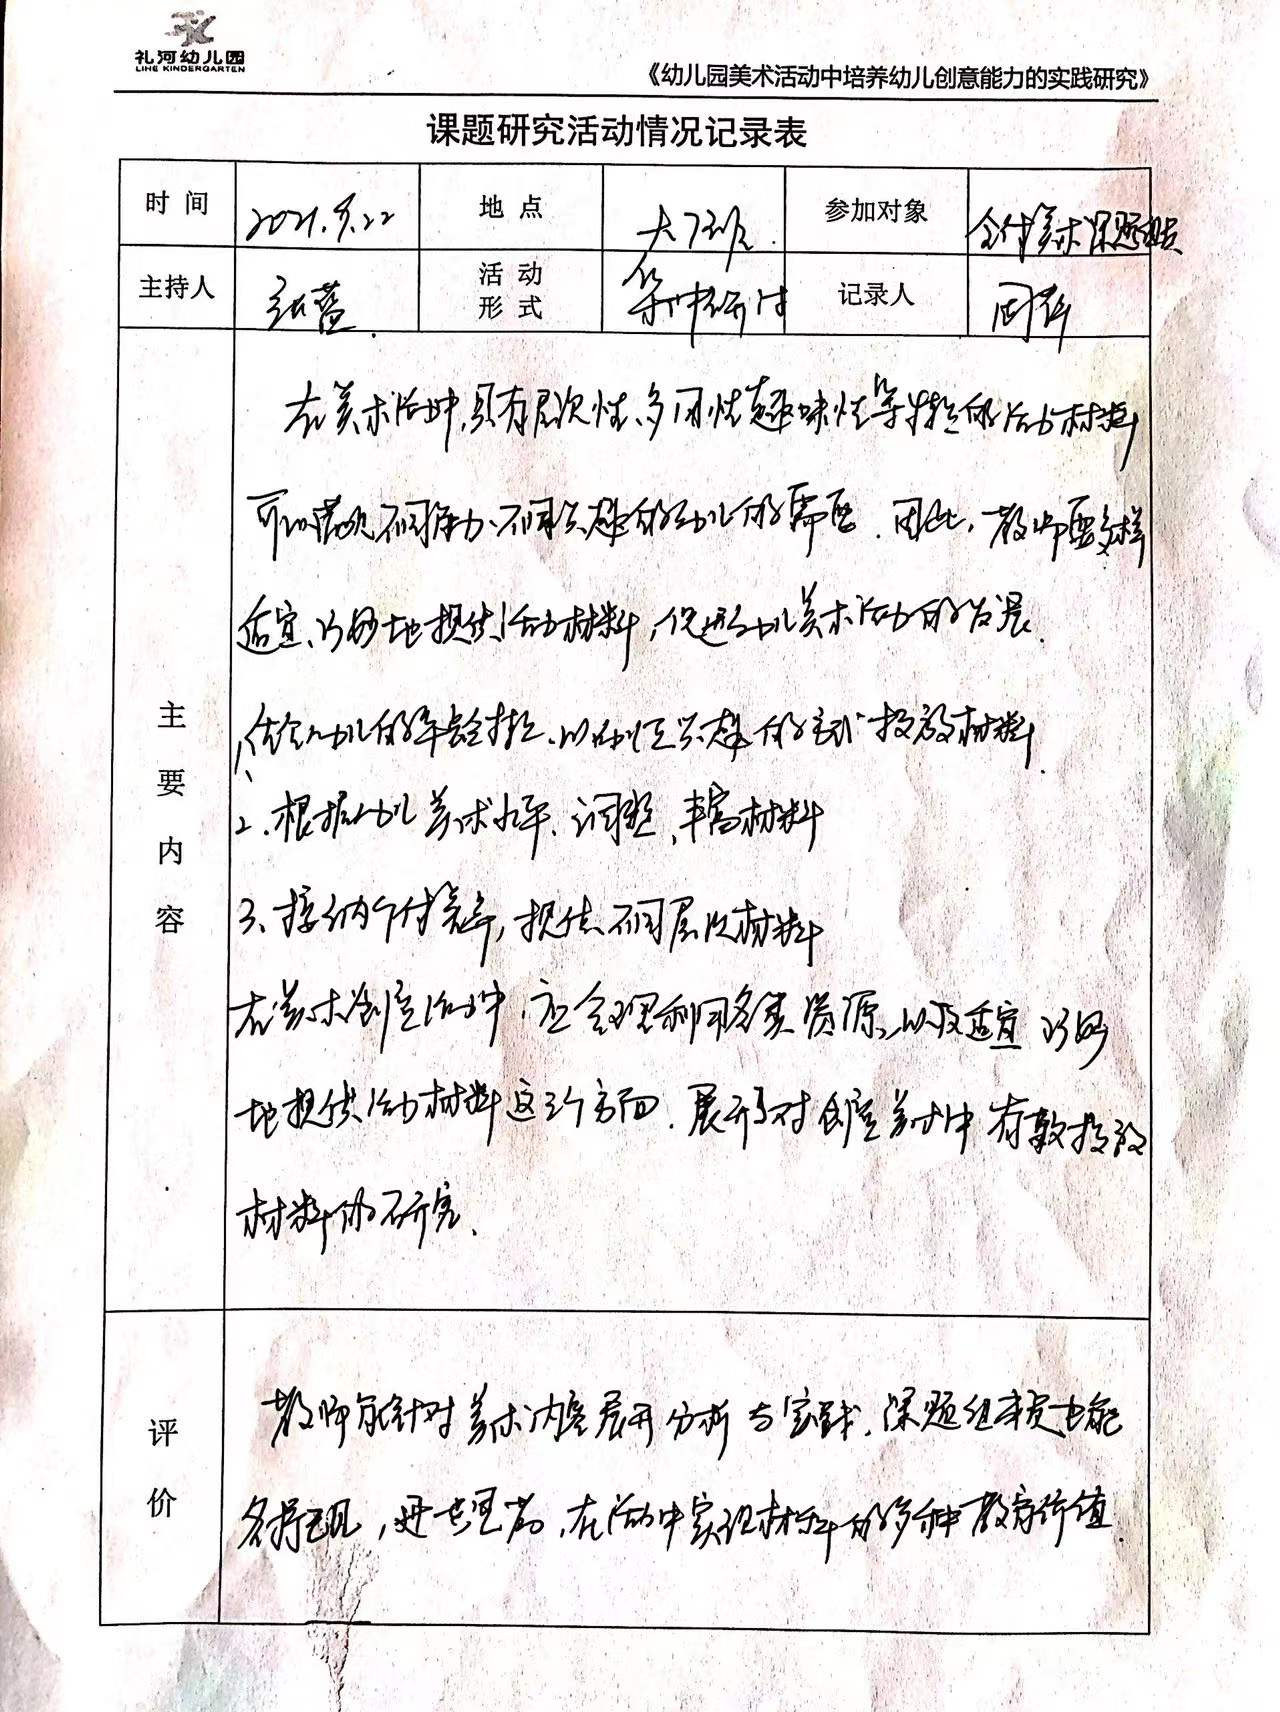 礼河幼儿园
LIHE KINDERGARTEN
《幼儿园美术活动中培养幼儿创意能力的实践研究》
课题研究活动情况记录表
时 间 2021.9.22 地 点 大(1)班 参加对象 全体美术课题组员
主持人 活 动 形 式 集中研讨 记录人
主要内容
在美术活动中,具有层次性、多用性、趣味性等特征的活动材料
可以满足不同能力、不同兴趣的幼儿的需要.因此,教师要多样
适宜、巧妙地提供活动材料,促进幼儿美术活动的发展.
1、结合幼儿的年龄特征,以幼儿感兴趣的方式投放材料.
2、根据幼儿美术水平、调整、丰富材料
3、接纳个体差异,提供不同层次材料
在美术创意活动中,应合理利用各类资源,以及适宜 巧妙
地提供活动材料这三个方面.展开了对创意美术中有效投放
材料的研究.
评价
教师能针对美术内容展开分析与实践.课题组成员也能
各抒己见,在活动中实现材料的多种教育价值.